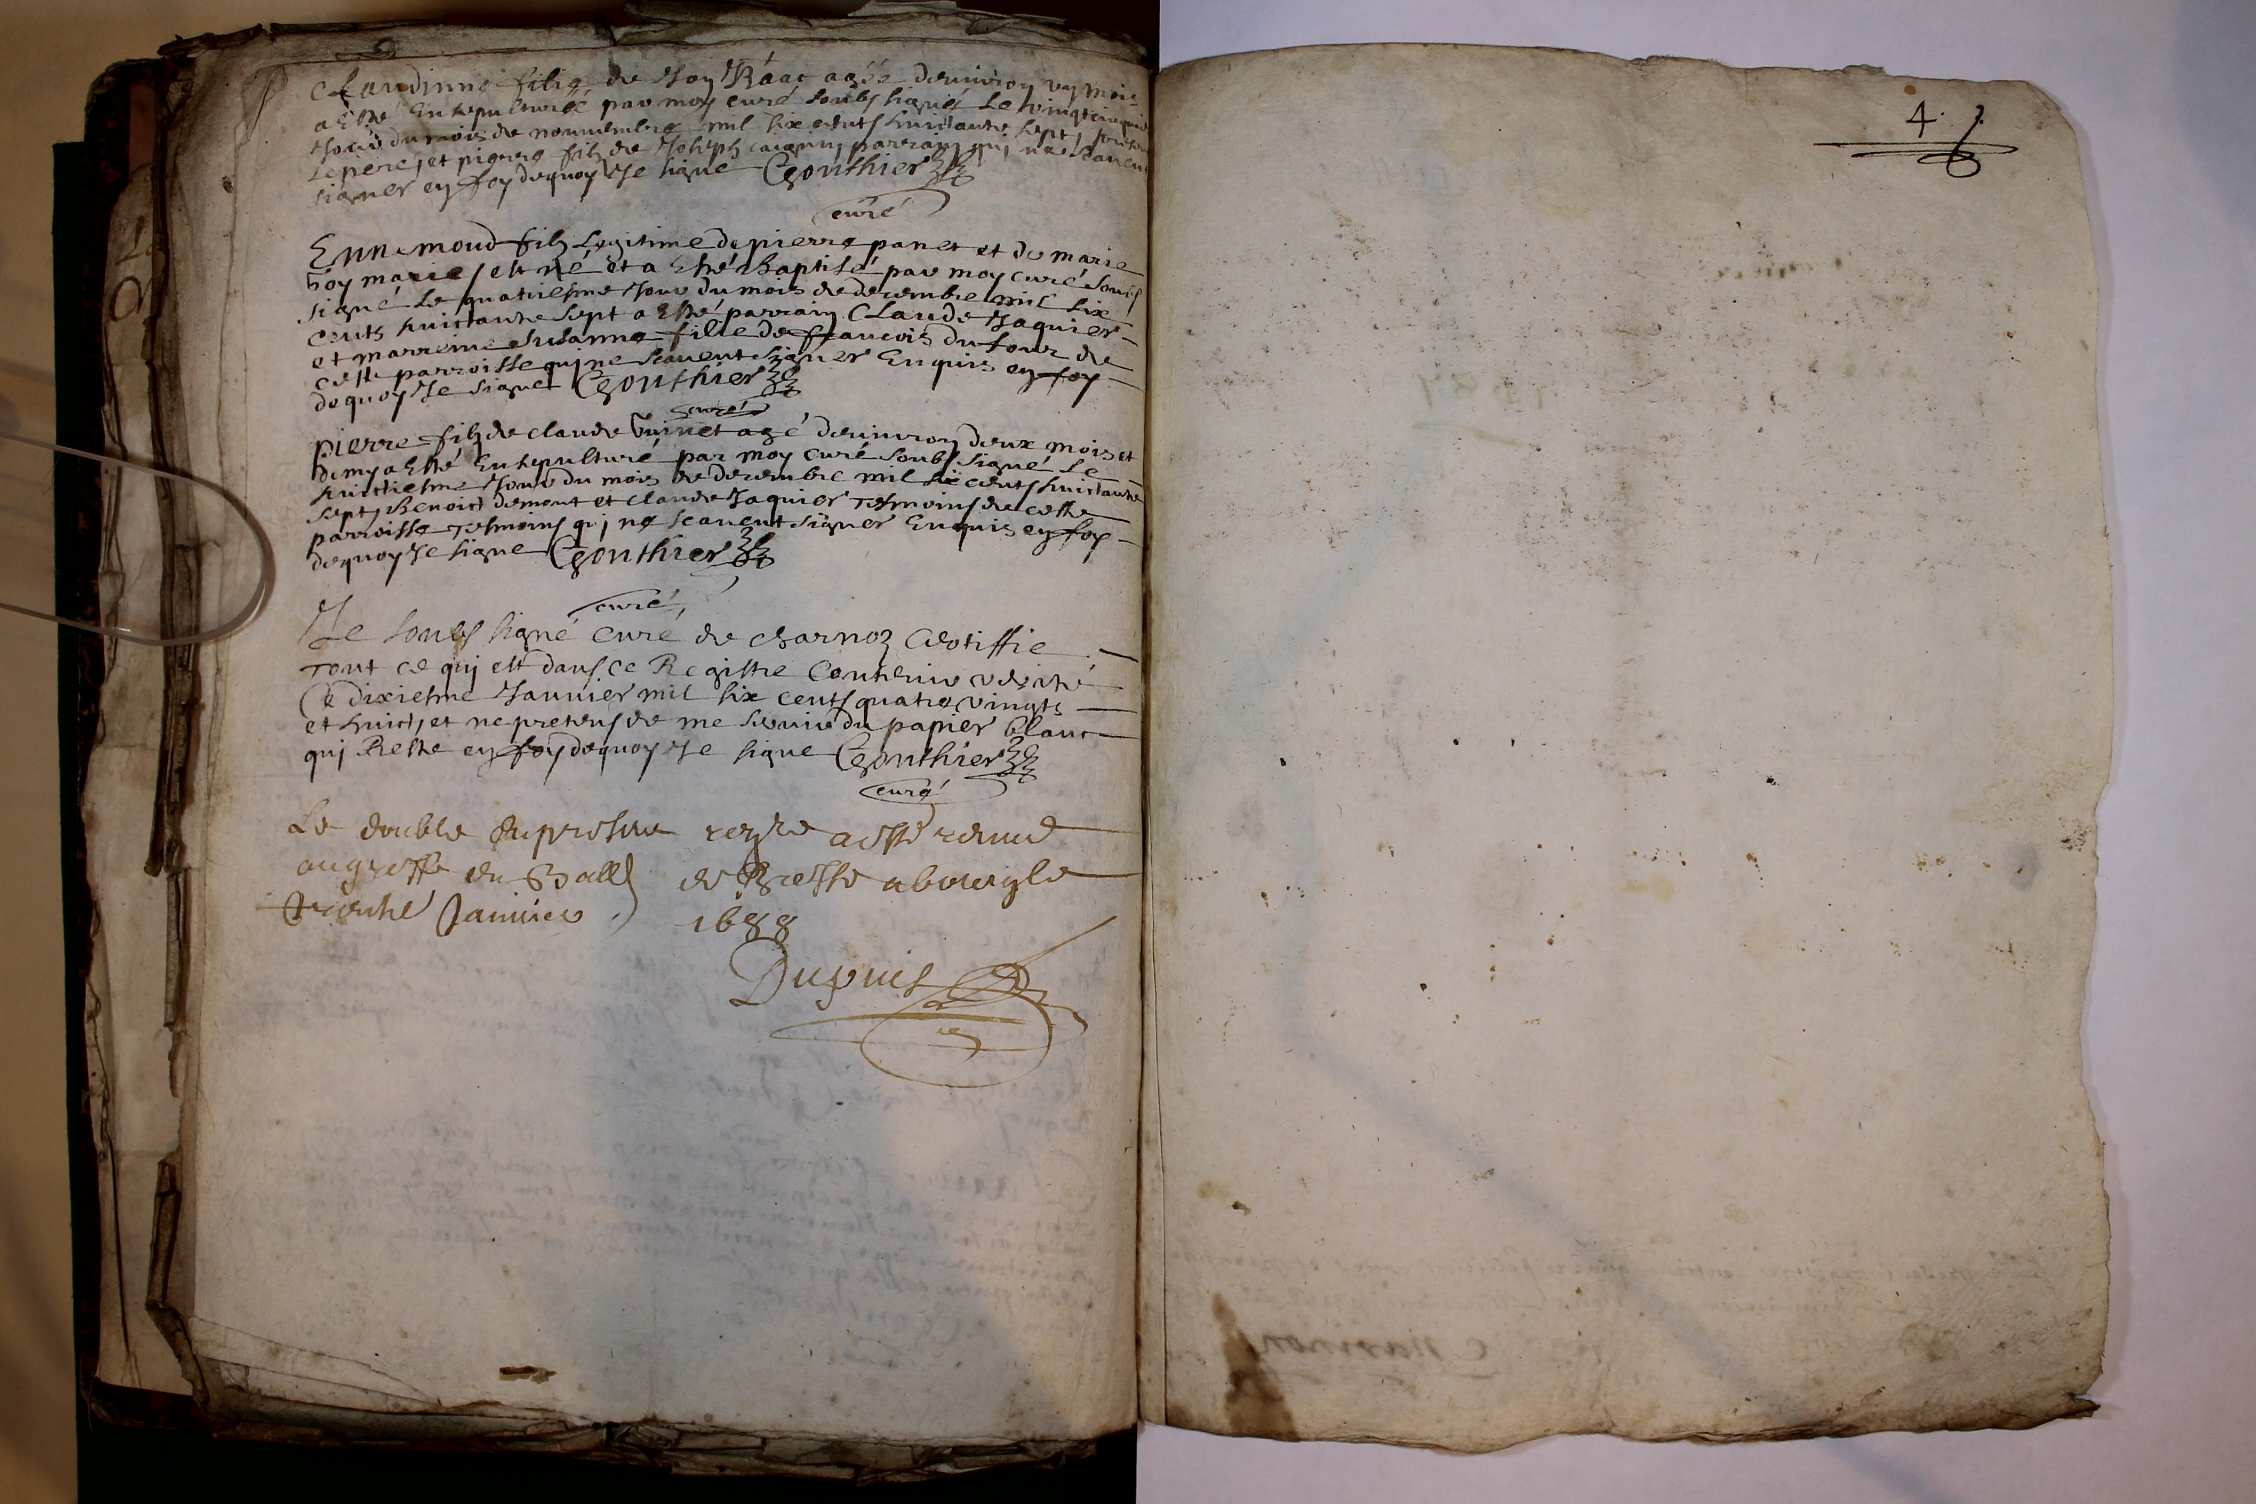 Claudinne fille de Joy Isaac agée denviron un mois
a Esté Ensepulturée par moy curé soubs signé Le vingtcinquie
Jour du mois de nouuembre mil six cents huictante sept,
Le pere, et pierre fils de Joseph parrain qui ne scauent
signer en foy dequoy Je signe CGonthier
curé
Ennemond fils Legitime de pierre panet et de marie
Goy mariés est né et a Esté Baptisé par moy curé soubs
signé Le quatriesme Jour du mois de decembre mil six
cents huictante sept a Esté parrain Claude Jaquier
et marreine Susanne fille de francois du four de
cette parroisse qui ne scauent signer Enquis en foy
dequoy Je signe CGonthier
curé
pierre fils de claude Guinet agé denuiron deux mois et
demy a Esté Ensepulturé par moy curé soubs signé Le
huictiesme Jour du mois de decembre mil six cents huictante
sept, Benoict dement et claude Jaquier Tesmoins de cette
parroisse Tesmoins qui ne scauent signer Enquis en foy
dequoy Je signe CGonthier
curé
Je soubs signé Curé de charnoz Certiffie
Tout ce qui est dans ce Registre Contenir verité
Ce dixiesme Januier mil six cents quatre vingts
et huict, et ne pretens de me seruir du papier blanc
qui Reste en foy dequoy Je signe CGonthier
curé
Le double du present regre a esté remis
au greffe du Ball de Bresse a bourg le
Trente Januier 1688
Dupuis
4.